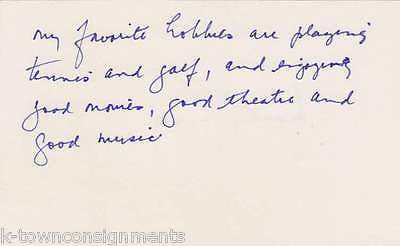 my favorite hobbies are playing
tennis and golf, and enjoying
good movies, good theatre and
good music
k-townconsignments